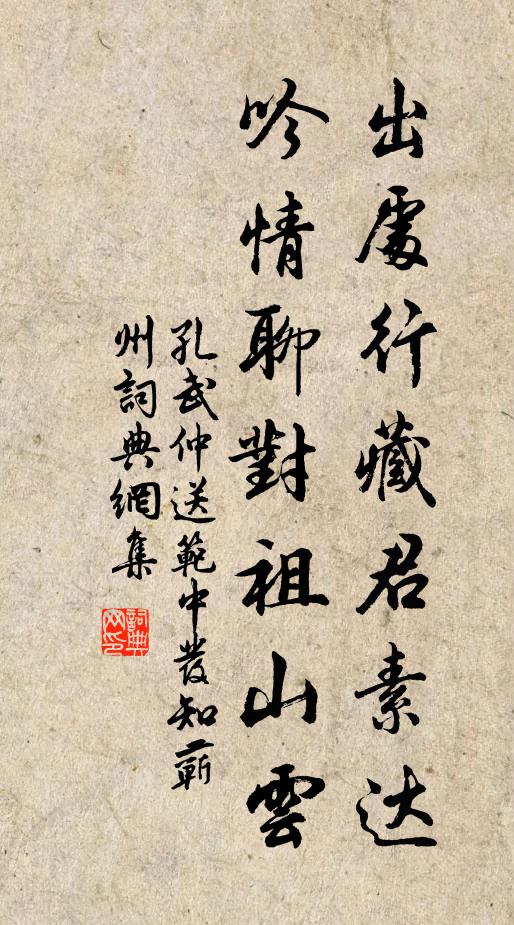 出處行藏君素达
吟情聊對祖山雲
孔武仲送範中發知蘄
州詞典網集
詞典网印